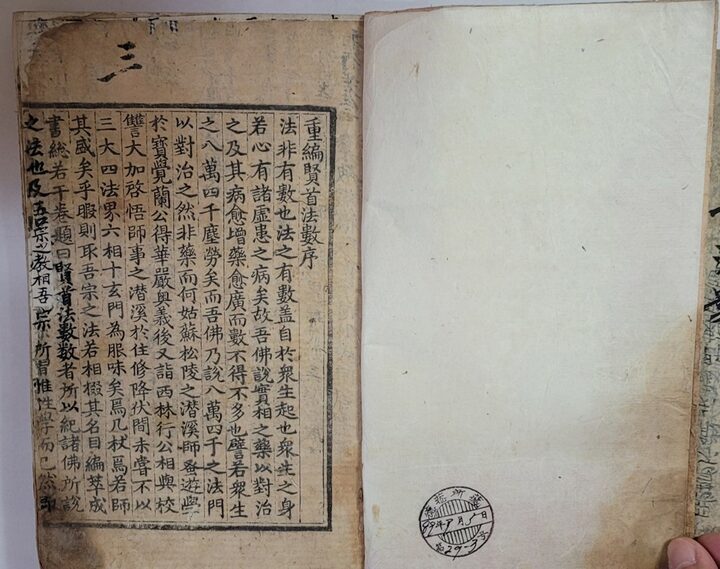 三
重編賢首法數序
法非有數也法之有數盖自於衆生起也衆生之身
若心有諸虛患之病矣故吾佛說實相之藥以對治
之及其病愈增藥愈廣而數不得不多也譬若衆生
之八萬四千塵勞矣而吾佛乃說八萬四千之法門
以對治之然非藥而何姑蘇松陵之潜溪師蚤遊學
於寶覺蘭公得華嚴奥義後又詣西林行公相與校
讐大加啓悟師事之潜溪於住修降伏間未嘗不以
三大四法界六相十玄門為服味矣焉几杖焉若師
其盛矣乎暇則取吾宗之法若相掇其名目編萃成
書総若干卷題曰賢首法數數者所以紀諸佛所說
之法也及五宗之教相吾宗所習惟性學而已然